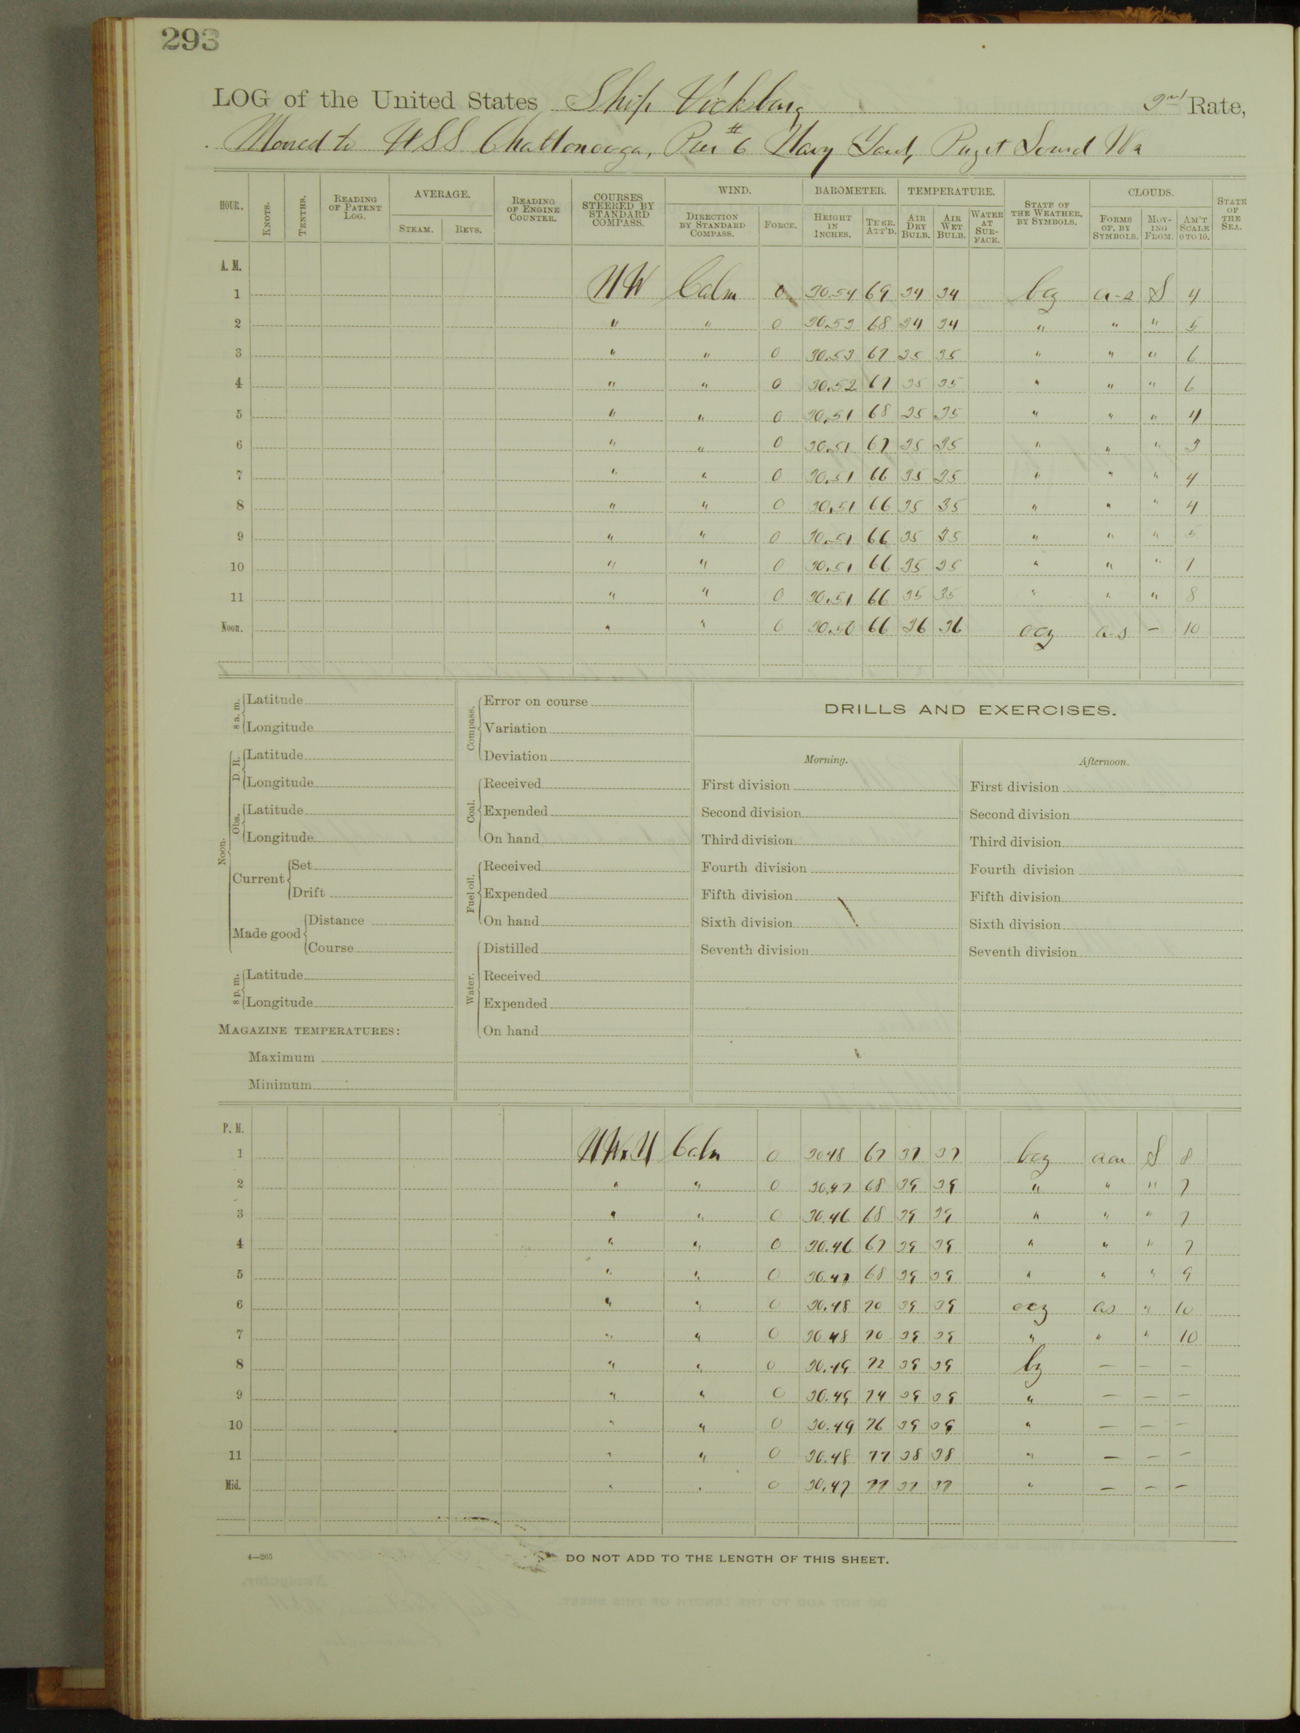 293
LOG of the United States Ship Vicksburg 2nd Rate,
Moored to USS Chattanooga, Pier #6 Navy Yard, Puget Sound Wa
HOUR. KNOTS. TENTHS. READING OF PATENT LOG. AVERAGE. STEAM. REVS. READING OF ENGINE COUNTER. COURSES STEERED BY STANDARD COMPASS. WIND. DIRECTION BY STANDARD COMPASS. FORCE. BAROMETER. HEIGHT IN INCHES. THER. ATT'D. TEMPERATURE. AIR DRY BULB. AIR WET BULB. WATER AT SURFACE. STATE OF THE WEATHER, BY SYMBOLS. CLOUDS. FORMS OF, BY SYMBOLS. MOVING FROM. AM'T SCALE 0 TO 10. STATE OF THE SEA.
A. M.
1 NW Calm 0 30.54 69 34 34 bcg a-s S 4
2 " " 0 30.53 68 34 34 " " " 5
3 " " 0 30.53 67 35 35 " " " 6
4 " " 0 30.52 67 35 35 " " " 6
5 " " 0 30.51 68 35 35 " " " 4
6 " " 0 30.51 67 35 35 " " " 3
7 " " 0 30.51 66 35 35 " " " 4
8 " " 0 30.51 66 35 35 " " " 4
9 " " 0 30.51 66 35 35 " " " 5
10 " " 0 30.51 66 35 35 " " "
11 " " 0 30.51 66 35 35 " " " 8
Noon. " " 0 30.50 66 36 36 ocg a-s — 10
8 a. m. Latitude
Longitude
Noon. D. R. Latitude
Longitude
Obs. Latitude
Longitude
Current Set
Drift
Made good Distance
Course
8 p. m. Latitude
Longitude
MAGAZINE TEMPERATURES:
Maximum
Minimum
Compass. Error on course
Variation
Deviation
Coal. Received
Expended
On hand
Fuel oil. Received
Expended
On hand
Water. Distilled
Received
Expended
On hand
DRILLS AND EXERCISES.
Morning.
First division
Second division
Third division
Fourth division
Fifth division
Sixth division
Seventh division
Afternoon.
First division
Second division
Third division
Fourth division
Fifth division
Sixth division
Seventh division
P. M.
1 NWxN Calm 0 30.48 67 37 37 bcg S 8
2 " " 0 30.47 68 39 39 " " " 7
3 " " 0 30.46 68 39 39 " " " 7
4 " " 0 30.46 67 39 39 " " " 7
5 " " 0 30.47 68 39 39 " " " 9
6 " " 0 30.48 70 39 39 ocg as " 10
7 " " 0 30.48 70 39 39 " " " 10
8 " " 0 30.49 72 39 39 bg — — —
9 " " 0 30.49 74 39 39 " — — —
10 " " 0 30.49 76 39 39 " — — —
11 " " 0 30.48 77 38 38 " — — —
Mid. " " 0 30.47 77 37 37 " — — —
4—265
DO NOT ADD TO THE LENGTH OF THIS SHEET.